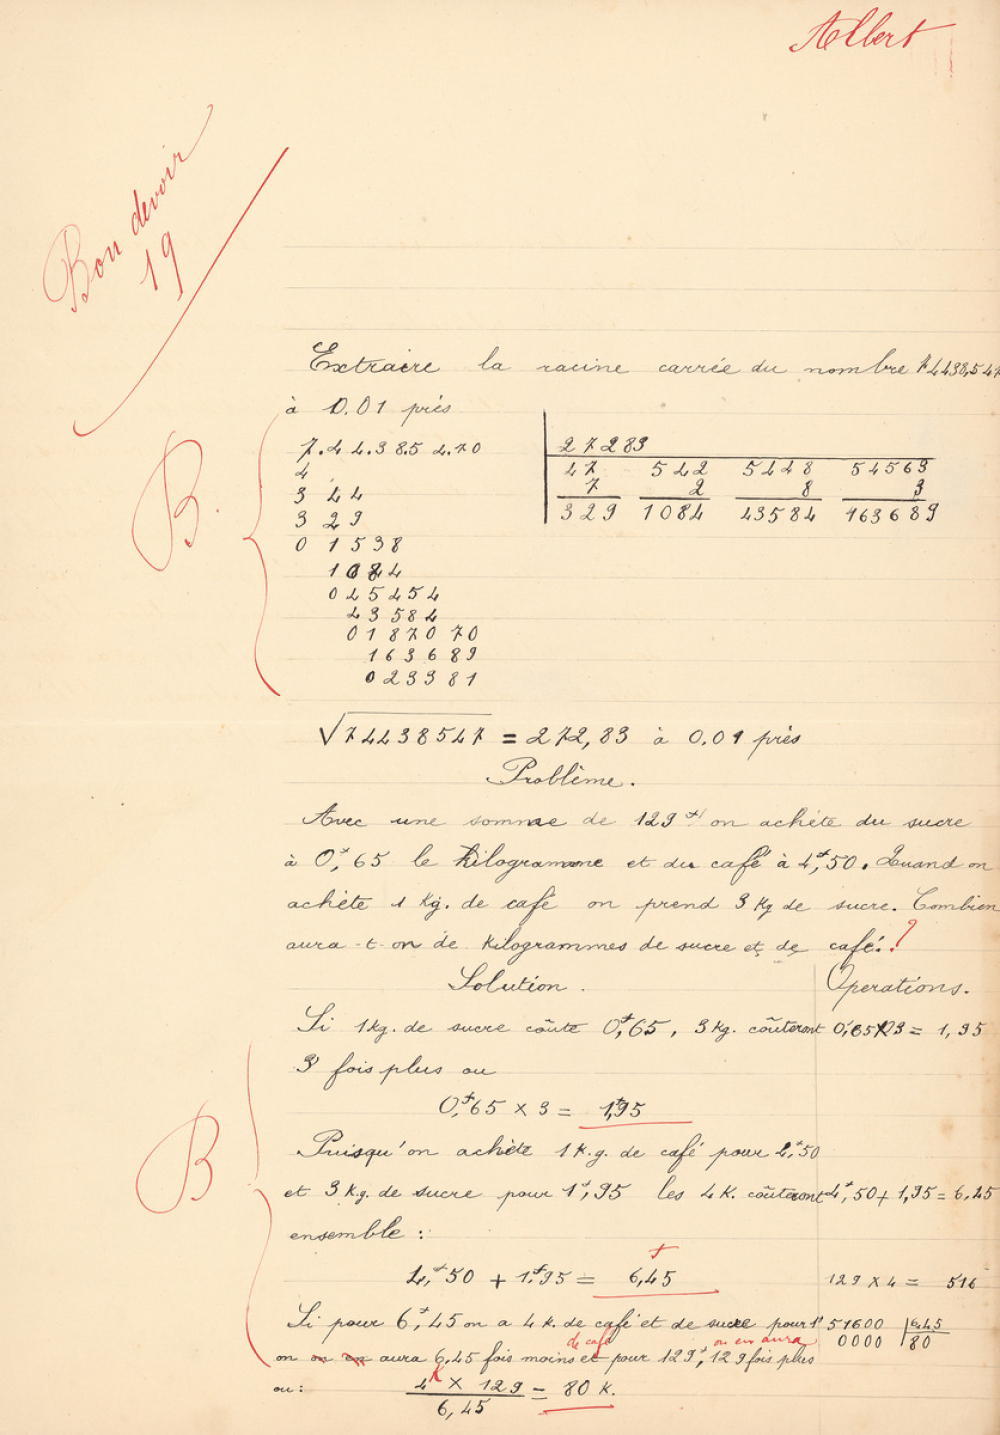 Albert
Bon devoir
19
Extraire la racine carrée du nombre 74438,547
à 0.01 près
B.
7.44.38.54.70
27283
4
47 542 5448 54563
3 44
7 2 8 3
3 29
329 1084 43584 163689
0 1538
1084
045454
43584
0187070
163689
023381
√74438547 = 272,83 à 0.01 près
Problème.
Avec une somme de 129f on achète du sucre
à 0,f65 le Kilogramme et du café à 4,f50. Quand on
achète 1 Kg. de café on prend 3 Kg de sucre. Combien
aura-t-on de kilogrammes de sucre et de café.?
Solution.
Operations.
Si 1kg. de sucre coûte 0,f65, 3kg. coûteront
0,65×3 = 1,95
3 fois plus ou
0,f65 × 3 = 1,f95
B
Puisqu'on achète 1K.g. de café pour 4,f50
et 3Kg. de sucre pour 1f,95 les 4K. coûteront
4f,50 + 1,95 = 6,45
ensemble :
4,f50 + 1,f95 = 6,f45
129 × 4 = 516
Si pour 6f,45 on a 4 K. de café et de sucre pour 1f
51600 6,45
de café on en aura
0000 80
on on en aura 6.45 fois moins et pour 129f, 129 fois plus
ou :
4K × 129 = 80 K.
6,45